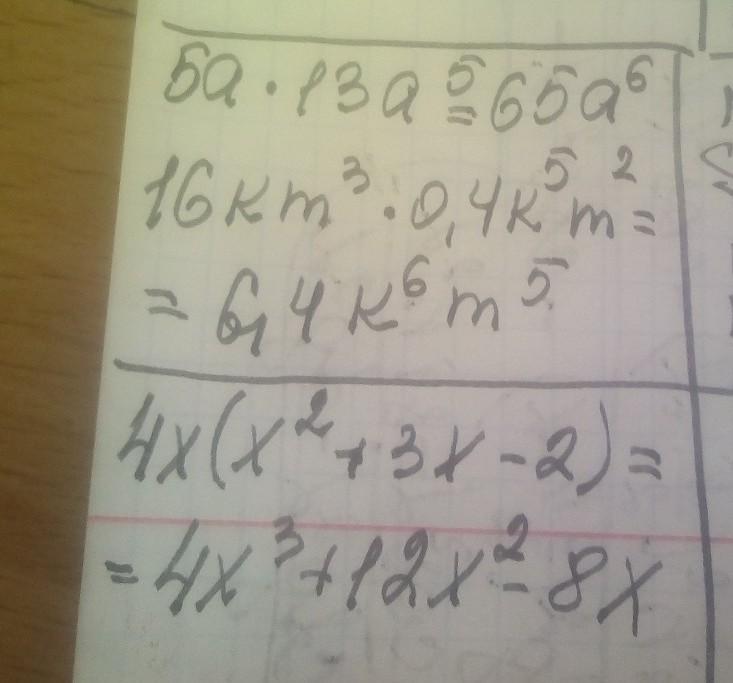 5a · 13a⁵ = 65a⁶
16кm³ · 0,4к⁵m² =
= 6,4к⁶m⁵
4x(x² + 3x - 2) =
= 4x³ + 12x² - 8x